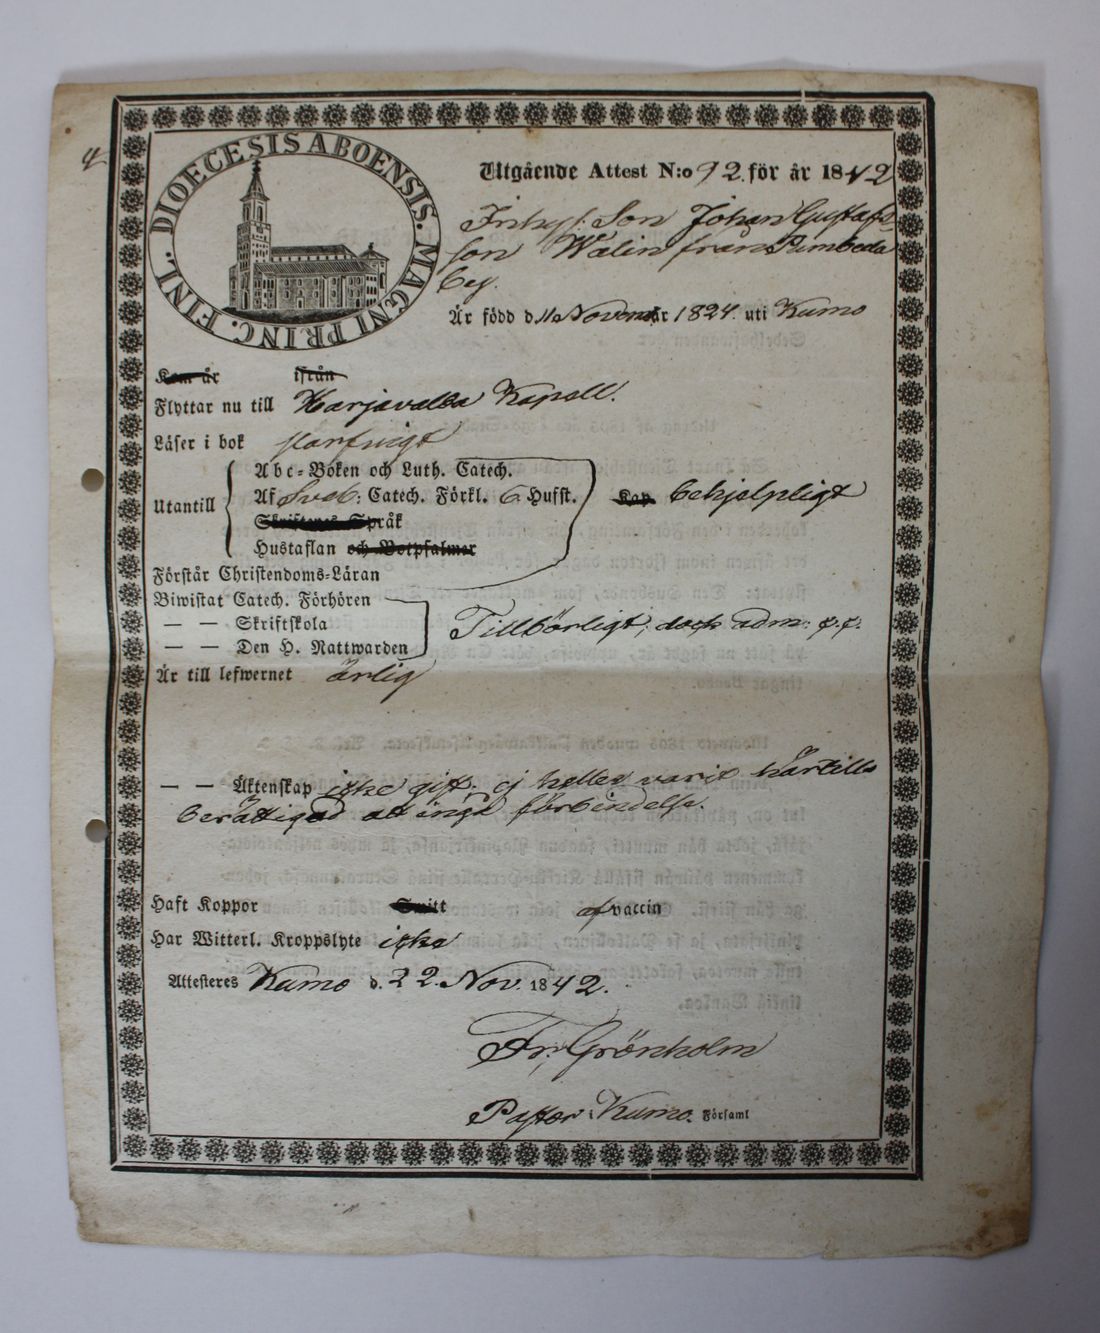 4
DIOECESIS ABOENSIS. MAGNI PRINC. FINL.
Utgående Attest N:o 92. för år 1842
Inhys. Son Johan Gustafs-
son Walin från Sumbeda
by.
Är född d. 11 Novem. år 1824. uti Kumo
Kom år ifrån
Flyttar nu till Harjavalda Kapell.
Läser i bok
Abc-Boken och Luth. Catech.
Utantill Af Sveb: Catech. Förkl. 6 Hufst. behjelpligt
Skriftenes Språk
Hustaflan och Botpsalmer
Förstår Christendoms-Läran
Biwistat Catech. Förhören
— — Skriftskola Tillbörligt, dock adm:
— — Den H. Nattwarden
Är till lefwernet ärlig
— — Äktenskap icke gift; ej heller varit härtills
berättigad att ingå förbindelse.
Haft Koppor Smitt af vaccin
Har Witterl. Kroppslyte icke
Attesteres Kumo d. 22. Nov. 1842.
Fr. Grönholm
Pastor i Kumo. Församl